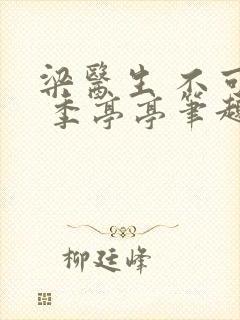 梁醫生 不可
季亭亭筆趣
柳廷峰